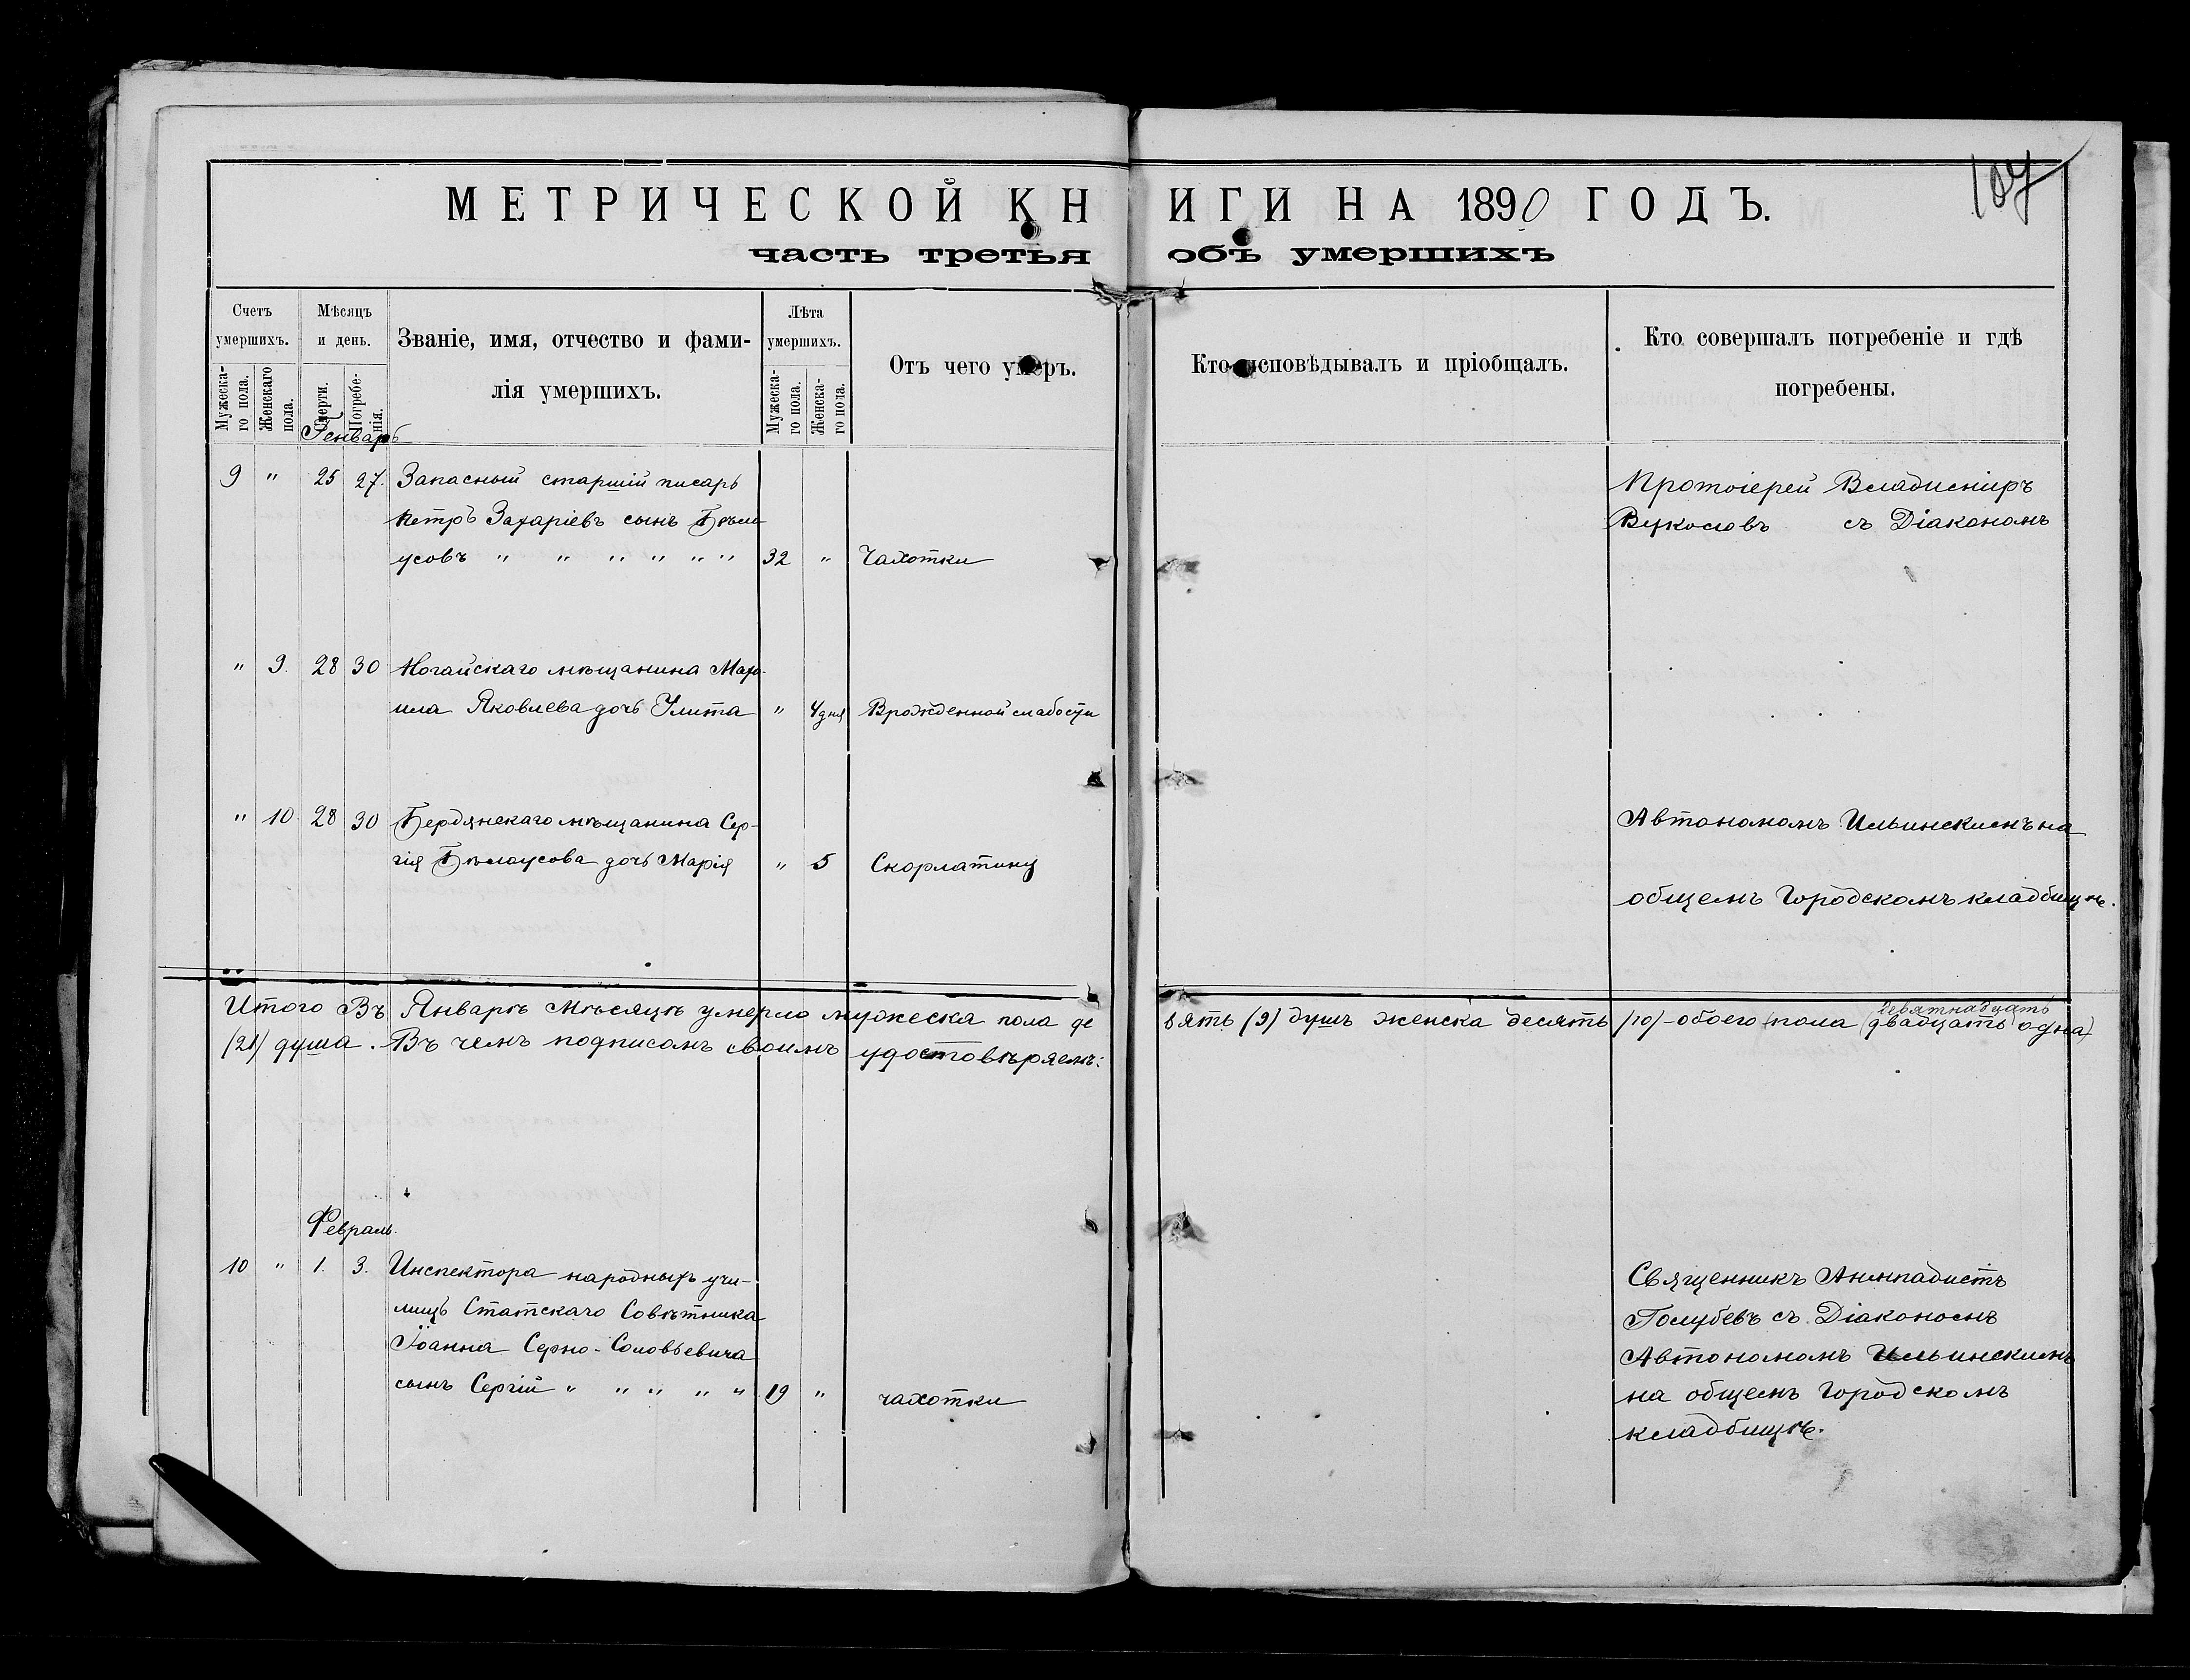 107
МЕТРИЧЕСКОЙ КНИГИ НА 1890 ГОДЪ.
часть третья объ умершихъ
Счетъ умершихъ.
Мужеска-го пола.
Женскаго пола.
Мѣсяцъ и день.
Смерти.
Погребе-нія.
Званіе, имя, отчество и фами-
лія умершихъ.
Лѣта умершихъ.
Мужеска-го пола.
Женска-го пола.
Отъ чего умеръ.
Кто исповѣдывалъ и пріобщалъ.
Кто совершалъ погребеніе и гдѣ
погребены.
Генварь
9 " 25 27. Запасный старшій писарь
Петръ Захаріевъ сынъ Бѣло
усовъ " " " " " " 32 " Чахотки
Протоіерей Владиміръ
Вукосовъ съ Діакономъ
" 9. 28 30 Ногайскаго мѣщанина
ила Яковлева дочь Улита " 4 дня Врожденной слабости
" 10. 28 30 Бердянскаго мѣщанина Сер-
гія Бѣлоусова дочь Марія " 5 Скорлатину
Автономомъ Ильинскимъ на
общемъ Городскомъ кладбищѣ.
девятнадцать
Итого Въ Январѣ Мѣсяцѣ умерло мужеска пола де вять (9) душъ женска десять (10) - обоего пола (двадцать одна)
(21) душа. Въ чемъ подписомъ своимъ удостовѣряемъ:
Февраль.
10 " 1. 3. Инспектора народныхъ учи-
лищъ Статскаго Совѣтника
Іоанна Серно-Соловьевича
сынъ Сергій " " " " " 19 " чахотки
Священникъ Анемподистъ
Голубевъ съ Діакономъ
Автономомъ Ильинскимъ
на общемъ Городскомъ
кладбищѣ.